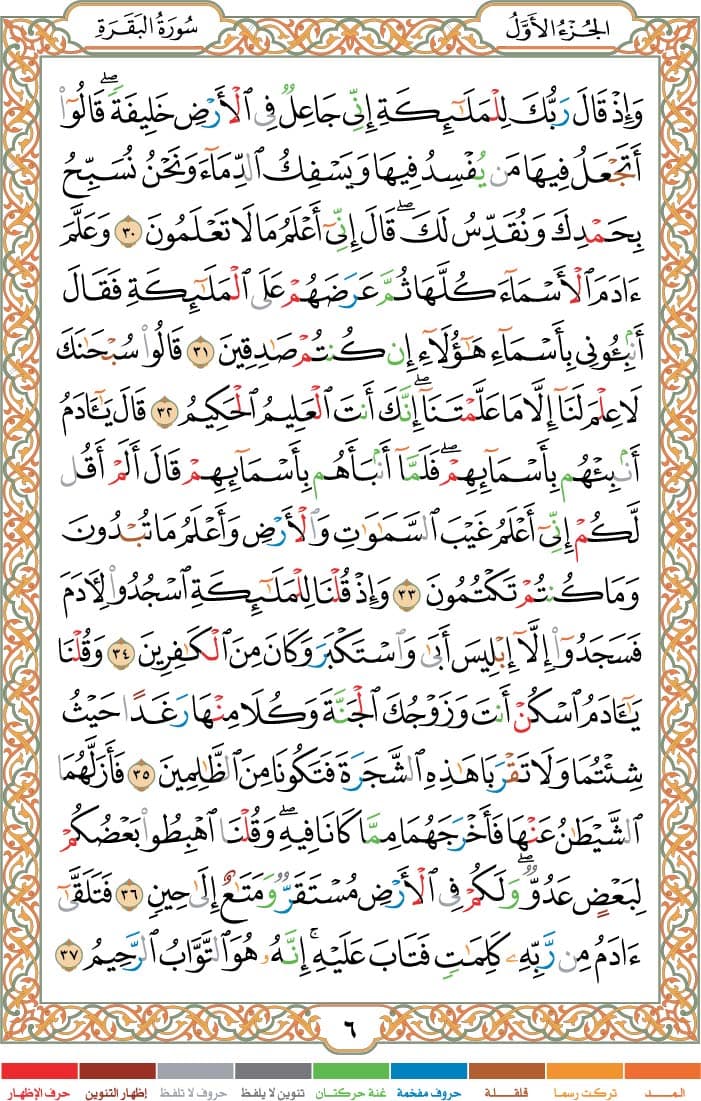 الجُزءُ الأَوَّلُ
سُورَةُ البَقَرَةِ
وَإِذْ قَالَ رَبُّكَ لِلْمَلَٰٓئِكَةِ إِنِّي جَاعِلٌ فِي ٱلْأَرْضِ خَلِيفَةً ۖ قَالُوٓا۟
أَتَجْعَلُ فِيهَا مَن يُفْسِدُ فِيهَا وَيَسْفِكُ ٱلدِّمَآءَ وَنَحْنُ نُسَبِّحُ
بِحَمْدِكَ وَنُقَدِّسُ لَكَ ۖ قَالَ إِنِّيٓ أَعْلَمُ مَا لَا تَعْلَمُونَ ٣٠ وَعَلَّمَ
ءَادَمَ ٱلْأَسْمَآءَ كُلَّهَا ثُمَّ عَرَضَهُمْ عَلَى ٱلْمَلَٰٓئِكَةِ فَقَالَ
أَنۢبِـُٔونِي بِأَسْمَآءِ هَٰٓؤُلَآءِ إِن كُنتُمْ صَٰدِقِينَ ٣١ قَالُوا۟ سُبْحَٰنَكَ
لَا عِلْمَ لَنَآ إِلَّا مَا عَلَّمْتَنَآ ۖ إِنَّكَ أَنتَ ٱلْعَلِيمُ ٱلْحَكِيمُ ٣٢ قَالَ يَٰٓـَٔادَمُ
أَنۢبِئْهُم بِأَسْمَآئِهِمْ ۖ فَلَمَّآ أَنۢبَأَهُم بِأَسْمَآئِهِمْ قَالَ أَلَمْ أَقُل
لَّكُمْ إِنِّيٓ أَعْلَمُ غَيْبَ ٱلسَّمَٰوَٰتِ وَٱلْأَرْضِ وَأَعْلَمُ مَا تُبْدُونَ
وَمَا كُنتُمْ تَكْتُمُونَ ٣٣ وَإِذْ قُلْنَا لِلْمَلَٰٓئِكَةِ ٱسْجُدُوا۟ لِـَٔادَمَ
فَسَجَدُوٓا۟ إِلَّآ إِبْلِيسَ أَبَىٰ وَٱسْتَكْبَرَ وَكَانَ مِنَ ٱلْكَٰفِرِينَ ٣٤ وَقُلْنَا
يَٰٓـَٔادَمُ ٱسْكُنْ أَنتَ وَزَوْجُكَ ٱلْجَنَّةَ وَكُلَا مِنْهَا رَغَدًا حَيْثُ
شِئْتُمَا وَلَا تَقْرَبَا هَٰذِهِ ٱلشَّجَرَةَ فَتَكُونَا مِنَ ٱلظَّٰلِمِينَ ٣٥ فَأَزَلَّهُمَا
ٱلشَّيْطَٰنُ عَنْهَا فَأَخْرَجَهُمَا مِمَّا كَانَا فِيهِ ۖ وَقُلْنَا ٱهْبِطُوا۟ بَعْضُكُمْ
لِبَعْضٍ عَدُوٌّ ۖ وَلَكُمْ فِي ٱلْأَرْضِ مُسْتَقَرٌّ وَمَتَٰعٌ إِلَىٰ حِينٍ ٣٦ فَتَلَقَّىٰٓ
ءَادَمُ مِن رَّبِّهِۦ كَلِمَٰتٍ فَتَابَ عَلَيْهِ ۚ إِنَّهُۥ هُوَ ٱلتَّوَّابُ ٱلرَّحِيمُ ٣٧
٦
المــــد
تركت رسما
قلقـلـة
حروف مفخمة
غنة حركتان
تنوين لا يلفظ
حروف لا تلفظ
إظهار التنوين
حرف الإظهار